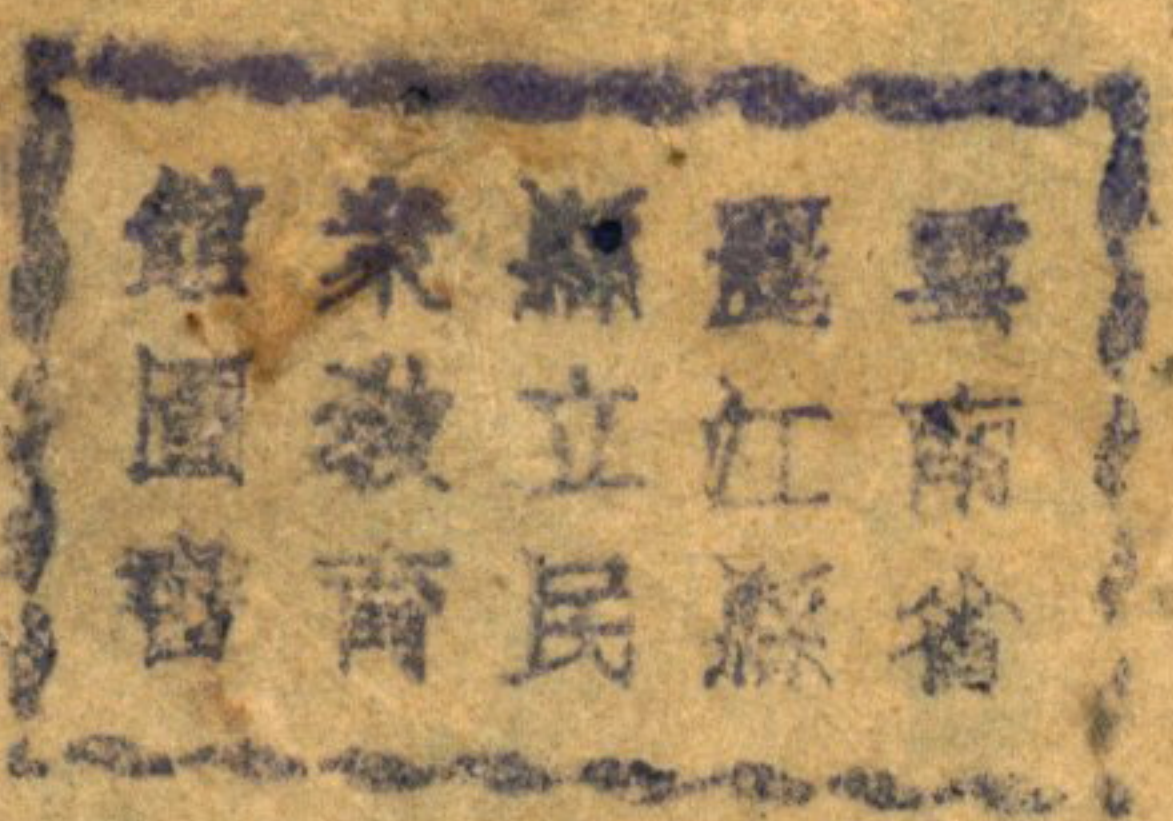 雲南省
麗江縣
縣立民
衆教育
館圖書